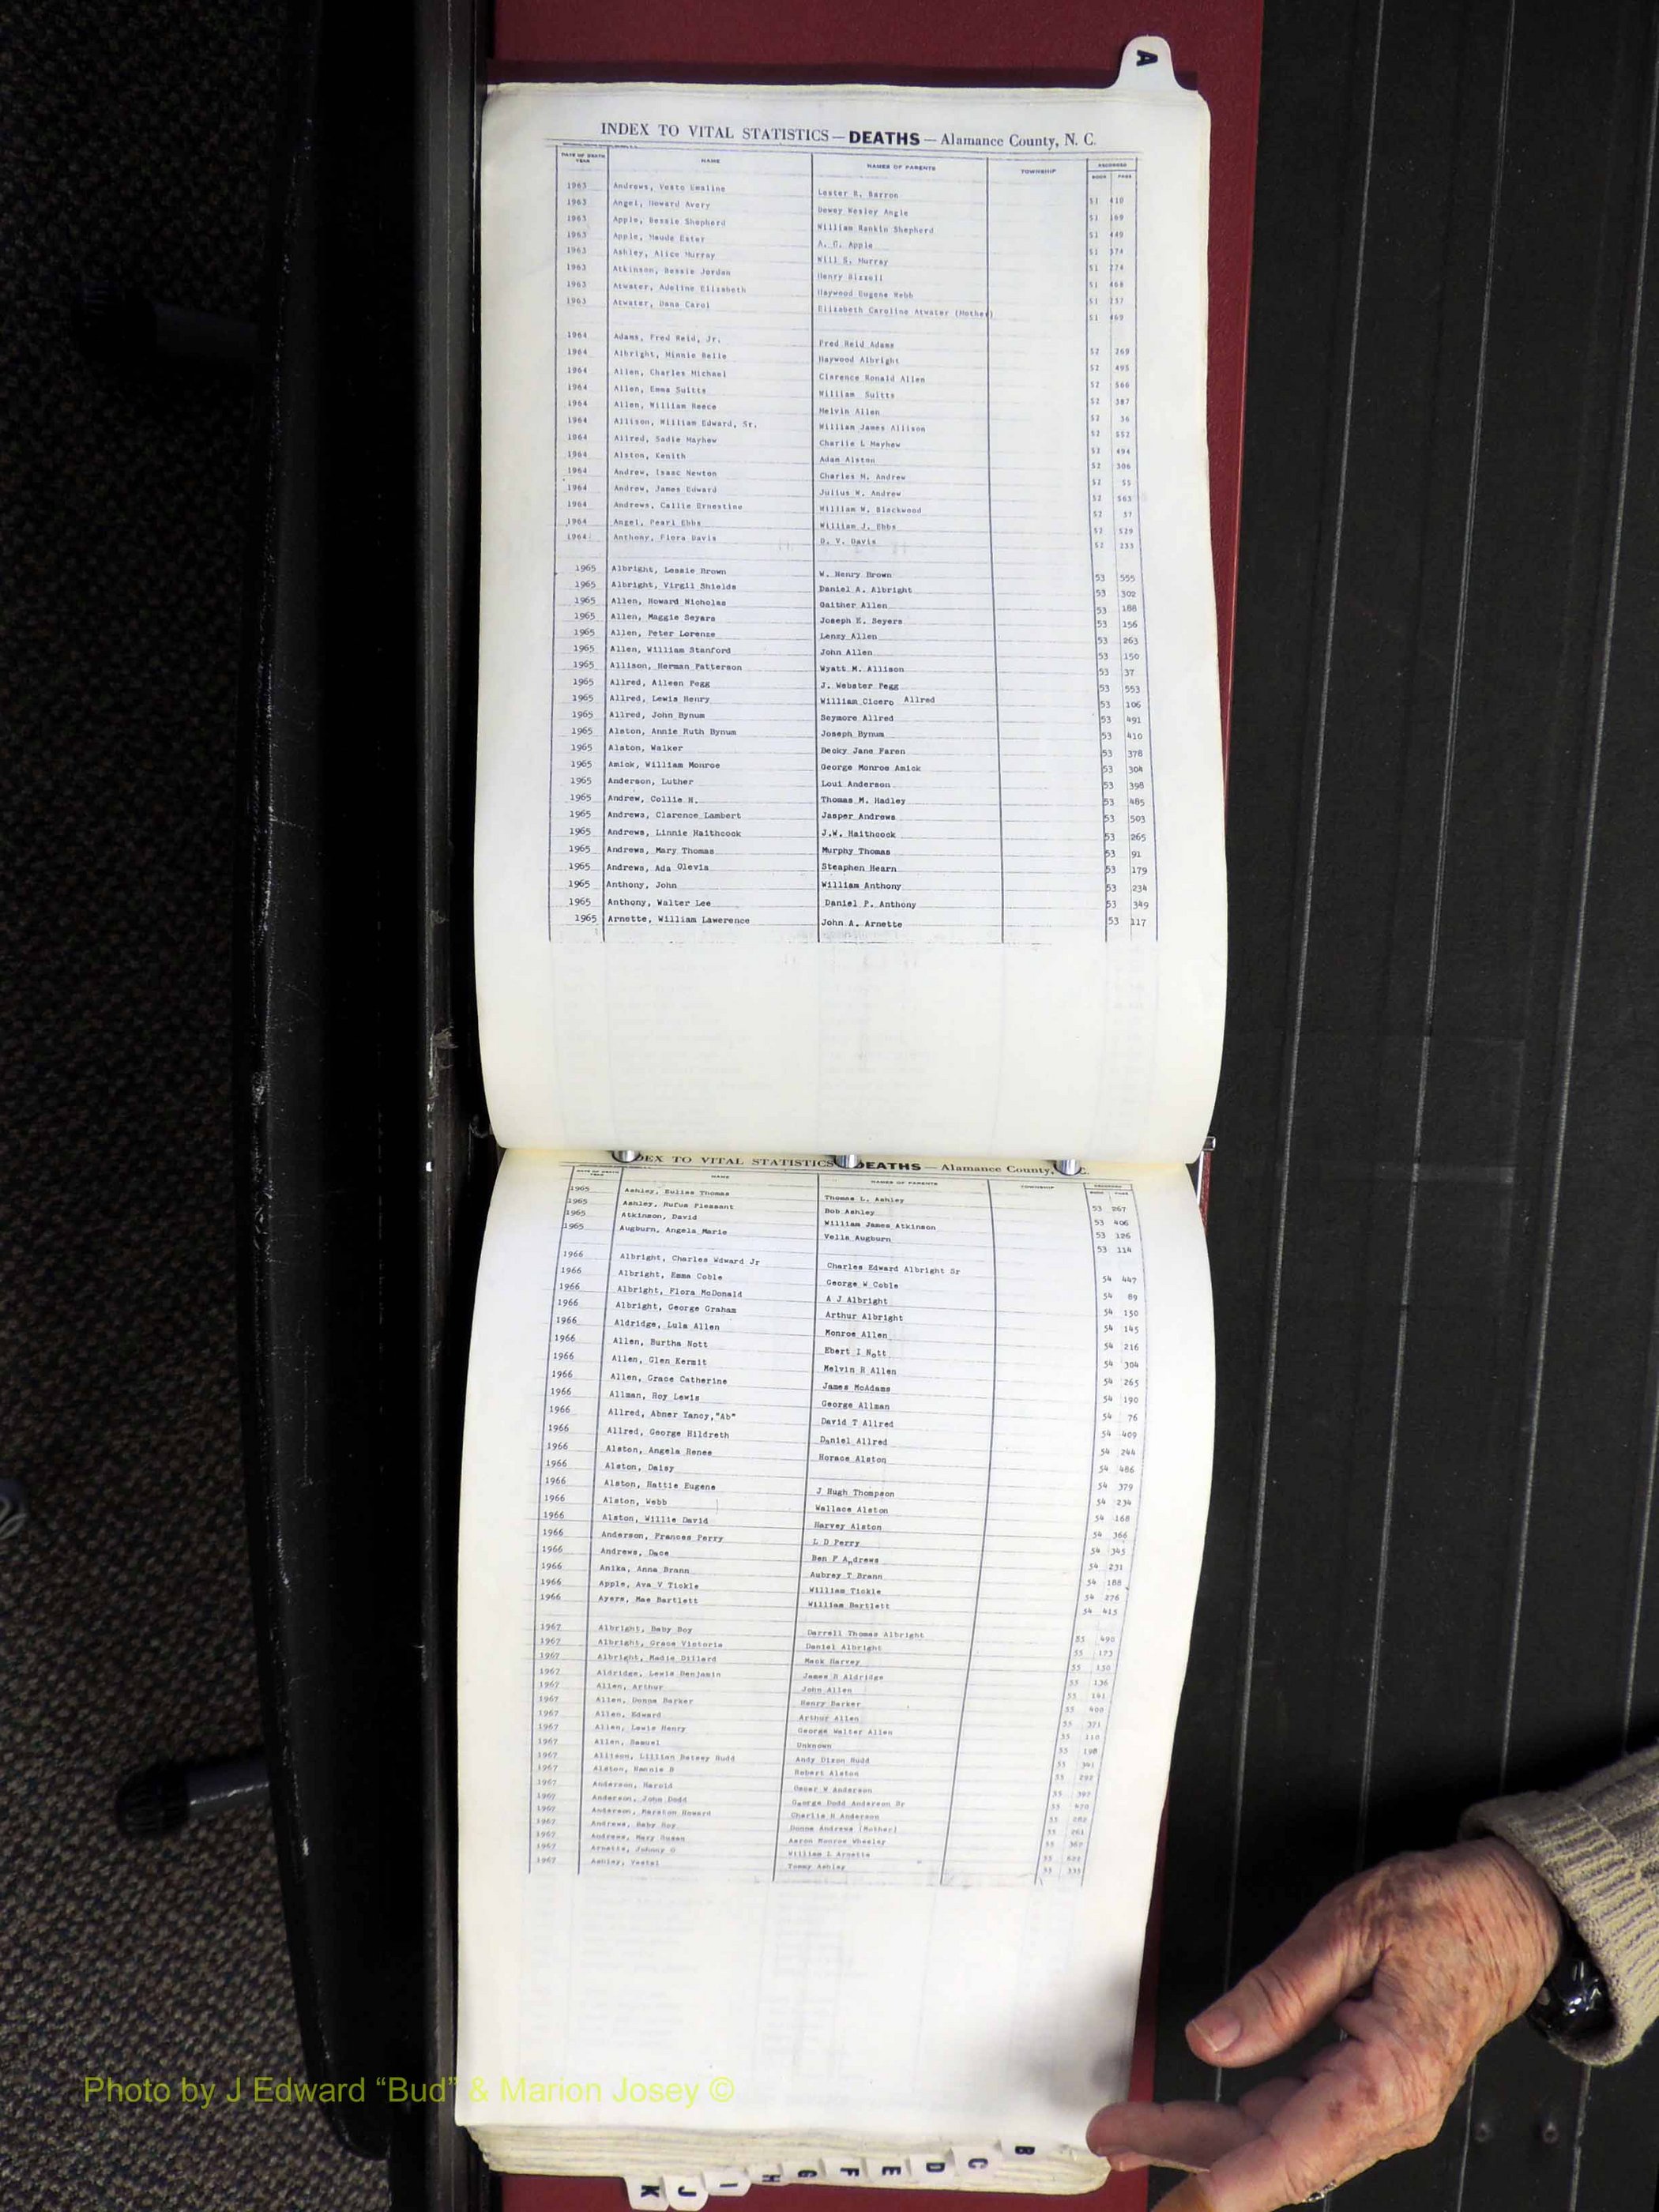 A
INDEX TO VITAL STATISTICS — DEATHS — Alamance County, N. C.
DATE OF DEATH YEAR NAME NAMES OF PARENTS TOWNSHIP RECORDED BOOK PAGE
1963 Andrews, Vesto Ewaline Lester R. Barron 51 410
1963 Angel, Howard Avery Dewey Wesley Angle 51 169
1963 Apple, Bessie Shepherd William Rankin Shepherd 51 449
1963 Apple, Maude Ester A. G. Apple 51 374
1963 Ashley, Alice Murray Will S. Murray 51 274
1963 Atkinson, Bessie Jordan Henry Bizzell 51 468
1963 Atwater, Adeline Elizabeth Haywood Eugene Webb 51 257
1963 Atwater, Dana Carol Elizabeth Caroline Atwater (Mother) 51 469
1964 Adams, Fred Reid, Jr. Fred Reid Adams 52 269
1964 Albright, Minnie Belle Haywood Albright 52 495
1964 Allen, Charles Michael Clarence Ronald Allen 52 566
1964 Allen, Emma Suitts William Suitts 52 387
1964 Allen, William Reece Melvin Allen 52 36
1964 Allison, William Edward, Sr. William James Allison 52 552
1964 Allred, Sadie Mayhew Charlie L Mayhew 52 494
1964 Alston, Kenith Adam Alston 52 306
1964 Andrew, Isaac Newton Charles M. Andrew 52 55
1964 Andrew, James Edward Julius W. Andrew 52 565
1964 Andrews, Callie Ernestine William W. Blackwood 52 57
1964 Angel, Pearl Ebbs William J. Ebbs 52 529
1964 Anthony, Flora Davis D. V. Davis 52 233
1965 Albright, Lessie Brown W. Henry Brown 53 555
1965 Albright, Virgil Shields Daniel A. Albright 53 302
1965 Allen, Howard Nicholas Gaither Allen 53 188
1965 Allen, Maggie Seyars Joseph E. Seyers 53 156
1965 Allen, Peter Lorenze Lenzy Allen 53 263
1965 Allen, William Stanford John Allen 53 150
1965 Allison, Herman Patterson Wyatt M. Allison 53 37
1965 Allred, Aileen Pegg J. Webster Pegg 53 553
1965 Allred, Lewis Henry William Cicero Allred 53 106
1965 Allred, John Bynum Seymore Allred 53 491
1965 Alston, Annie Ruth Bynum Joseph Bynum 53 410
1965 Alston, Walker Becky Jane Faren 53 378
1965 Amick, William Monroe George Monroe Amick 53 304
1965 Anderson, Luther Loui Anderson 53 398
1965 Andrew, Collie H. Thomas M. Hadley 53 485
1965 Andrews, Clarence Lambert Jasper Andrews 53 503
1965 Andrews, Linnie Haithcock J.W. Haithcock 53 265
1965 Andrews, Mary Thomas Murphy Thomas 53 91
1965 Andrews, Ada Olevia Steaphen Hearn 53 179
1965 Anthony, John William Anthony 53 234
1965 Anthony, Walter Lee Daniel P. Anthony 53 349
1965 Arnette, William Lawerence John A. Arnette 53 117
DEX TO VITAL STATISTICS DEATHS — Alamance County, C.
DATE OF DEATH YEAR NAME NAMES OF PARENTS TOWNSHIP RECORDED BOOK PAGE
1965 Ashley, Euliss Thomas Thomas L. Ashley 53 267
1965 Ashley, Rufus Pleasant Bob Ashley 53 406
1965 Atkinson, David William James Atkinson 53 126
1965 Augburn, Angela Marie Vella Augburn 53 114
1966 Albright, Charles Wdward Jr Charles Edward Albright Sr 54 447
1966 Albright, Emma Coble George W Coble 54 89
1966 Albright, Flora McDonald A J Albright 54 150
1966 Albright, George Graham Arthur Albright 54 145
1966 Aldridge, Lula Allen Monroe Allen 54 216
1966 Allen, Burtha Nott Ebert I Nott 54 304
1966 Allen, Glen Kermit Melvin R Allen 54 265
1966 Allen, Grace Catherine James McAdams 54 190
1966 Allman, Roy Lewis George Allman 54 76
1966 Allred, Abner Yancy,"Ab" David T Allred 54 409
1966 Allred, George Hildreth Daniel Allred 54 244
1966 Alston, Angela Renee Horace Alston 54 486
1966 Alston, Daisy 54 379
1966 Alston, Hattie Eugene J Hugh Thompson 54 234
1966 Alston, Webb Wallace Alston 54 168
1966 Alston, Willie David Harvey Alston 54 366
1966 Anderson, Frances Perry L D Perry 54 345
1966 Andrews, Dace Ben F Andrews 54 231
1966 Anika, Anna Brann Aubrey T Brann 54 188
1966 Apple, Ava V Tickle William Tickle 54 276
1966 Ayers, Mae Bartlett William Bartlett 54 415
1967 Albright, Baby Boy Darrell Thomas Albright 55 490
1967 Albright, Grace Victoria Daniel Albright 55 173
1967 Albright, Madie Dillard Mack Harvey 55 150
1967 Aldridge, Lewis Benjamin James R Aldridge 55 136
1967 Allen, Arthur John Allen 55 141
1967 Allen, Donna Barker Henry Barker 55 400
1967 Allen, Edward Arthur Allen 55 371
1967 Allen, Lewis Henry George Walter Allen 55 110
1967 Allen, Samuel Unknown 55 198
1967 Allison, Lillian Betsey Rudd Andy Dixon Rudd 55 341
1967 Alston, Nannie B Robert Alston 55 292
1967 Anderson, Harold Oscar W Anderson 55 397
1967 Anderson, John Dodd George Dodd Anderson Sr 55 470
1967 Anderson, Marston Howard Charlie H Anderson 55 282
1967 Andrews, Baby Boy Donna Andrews (Mother) 55 261
1967 Andrews, Mary Susan Aaron Monroe Wheeley 55 362
1967 Arnette, Johnny O William L Arnette 55 622
1967 Ashley, Vestal Tommy Ashley 55 335
Photo by J Edward “Bud” & Marion Josey ©
B
C
D
E
F
G
H
I
J
K